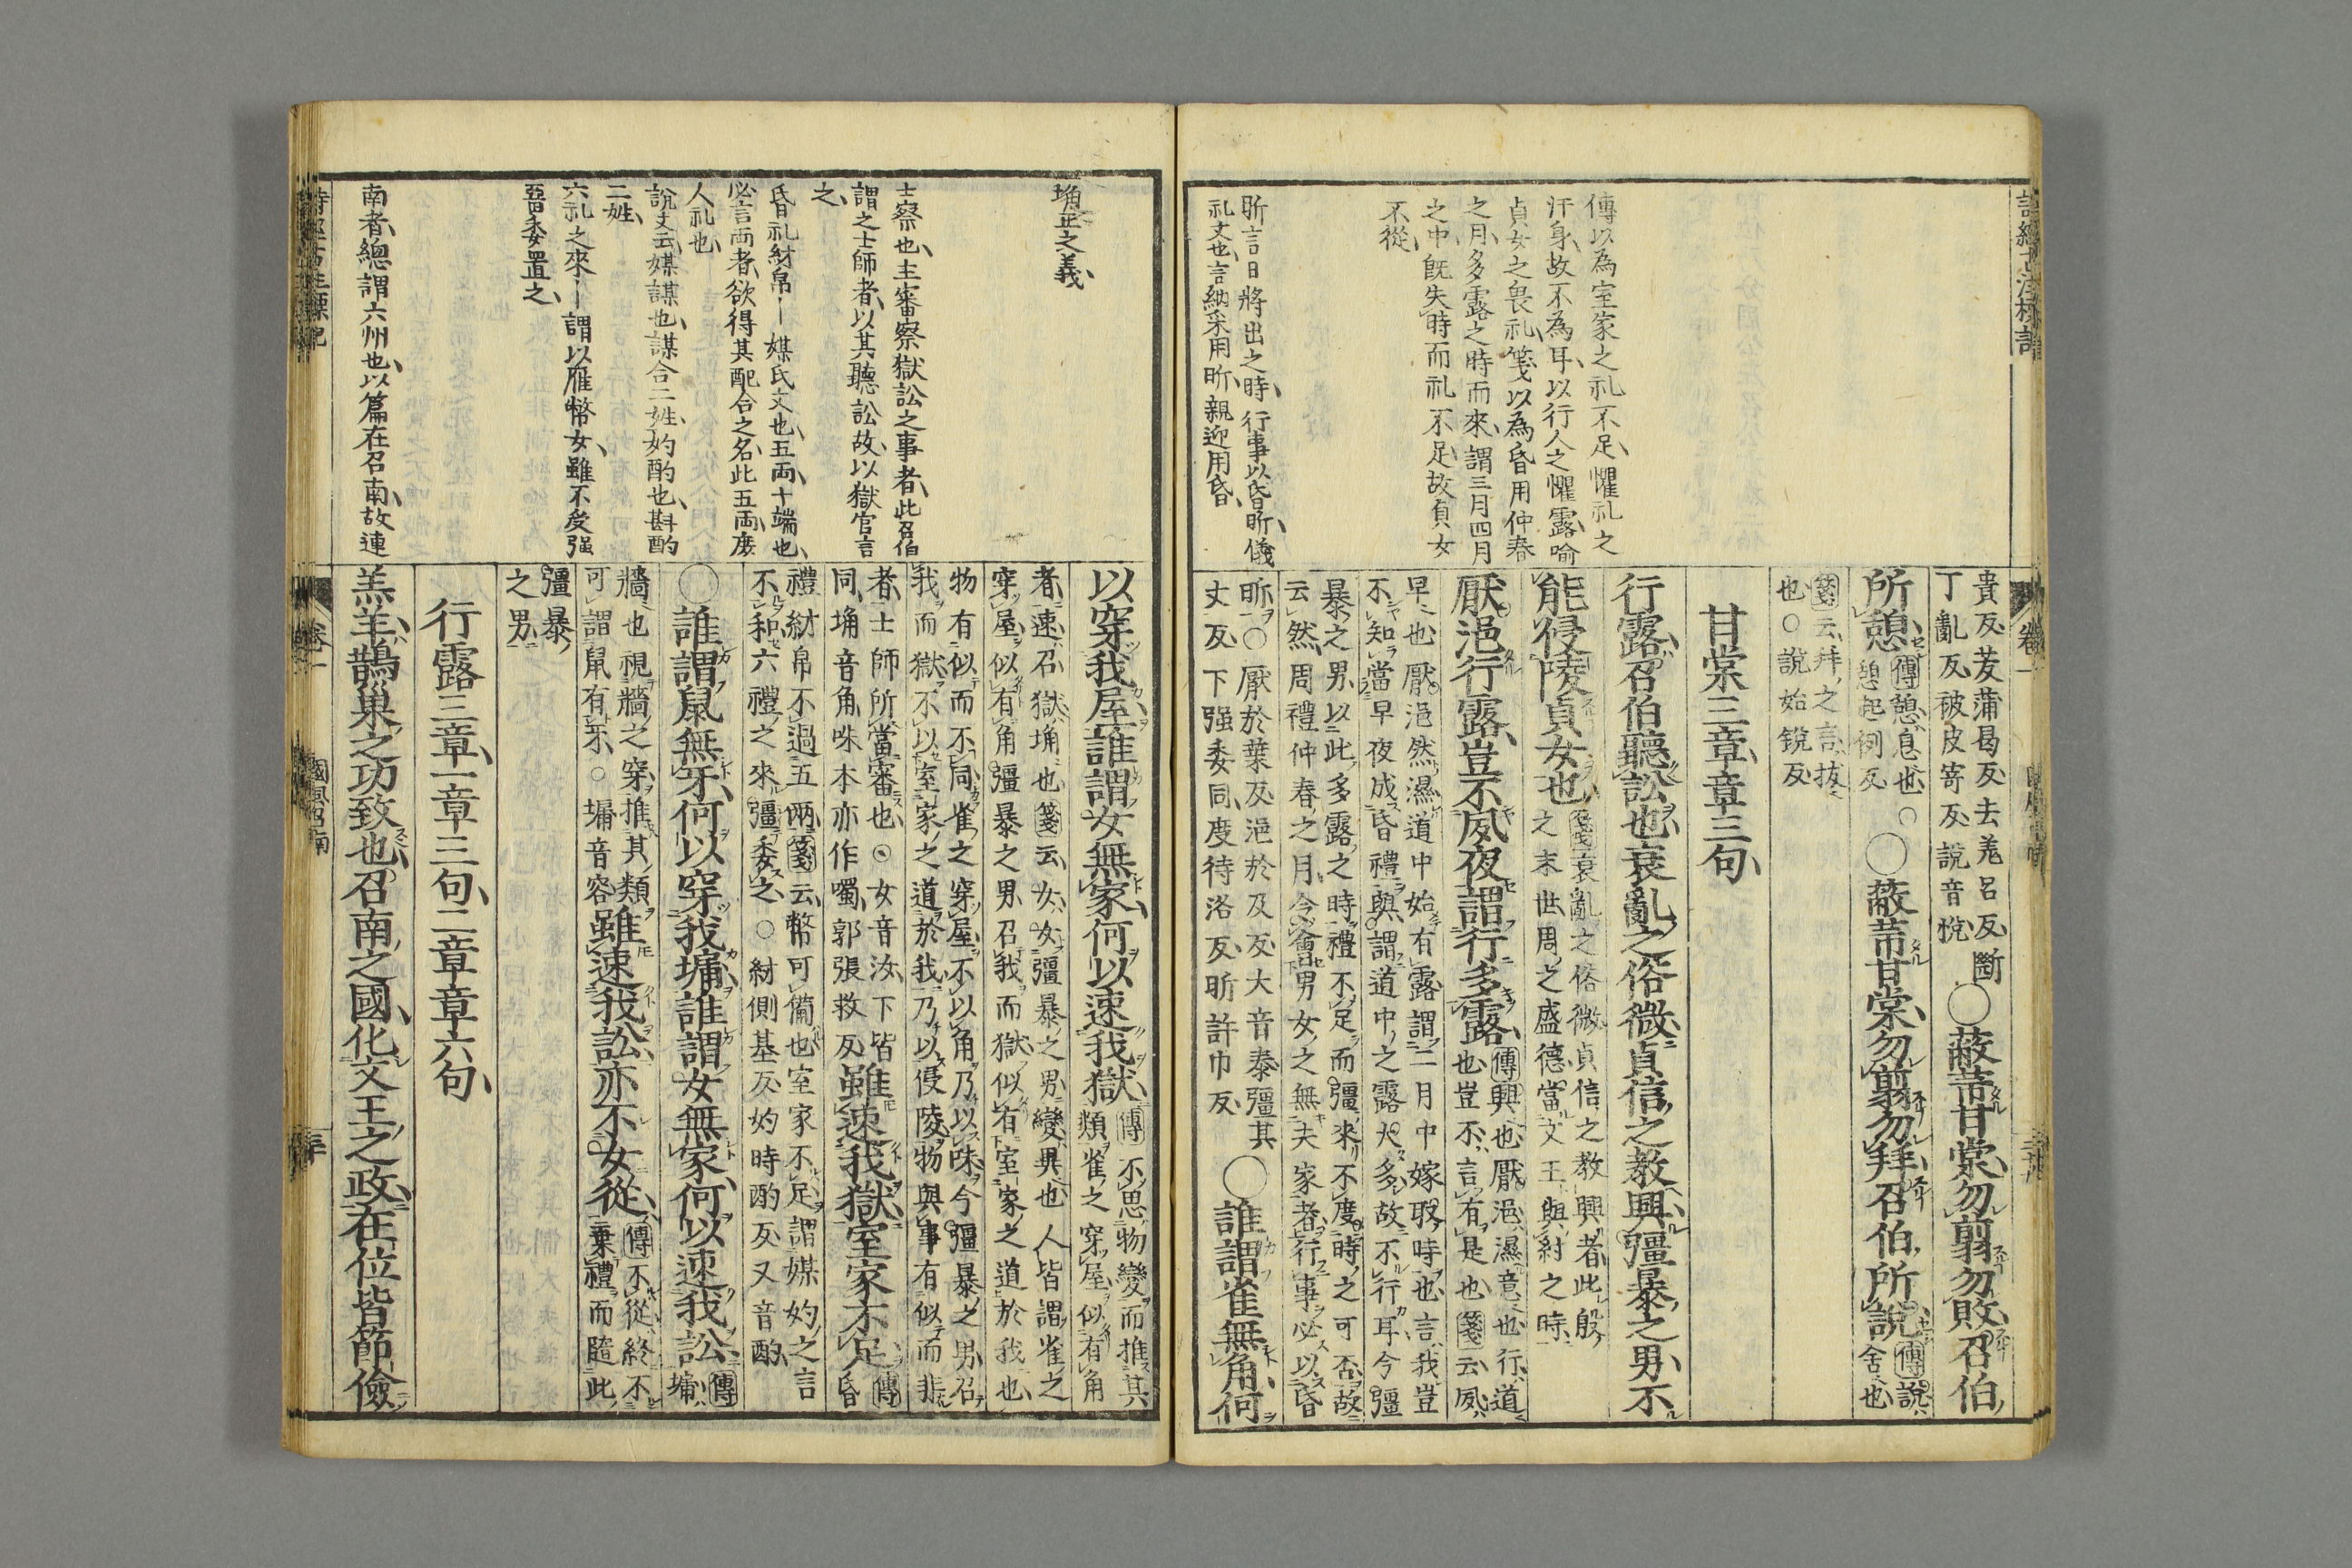 貴反茇蒲曷反去羌呂反斷
丁亂反被皮寄反說音悅
○蔽芾甘棠勿翦勿敗召伯
所憩
傳憩息也○
憩起例反
○蔽芾甘棠勿翦勿拜召伯所說
傳說
舍也
箋云拜之言拔
也○說始銳反
甘棠三章章三句
行露召伯聽訟也衰亂之俗微貞信之敎興彊暴之男不
能侵陵貞女也
箋衰亂之俗微貞信之敎興者此殷
之末世周之盛德當文王與紂之時
厭浥行露豈不夙夜謂行多露
傳興也厭浥濕意也行道
也豈不言有是也箋云夙
早也厭浥然濕道中始有露謂二月中嫁取時也言我豈
不知當早夜成昏禮與謂道中之露大多故不行耳今彊
暴之男以此多露之時禮不足而彊來不度時之可否故
云然周禮仲春之月令會男女之無夫家者行事必以昏
昕○厭於葉反浥於及反大音泰彊其
丈反下强委同度待洛反昕許巾反
○誰謂雀無角何
傳以為室家之礼不足懼礼之
汗身故不為耳以行人之懼露喻
貞女之畏礼箋以為昏用仲春
之月多露之時而來謂三月四月
之中旣失時而礼不足故貞女
不從
昕言日將出之時行事以昏昕儀
礼文也言納采用昕親迎用昏
以穿我屋誰謂女無家何以速我獄
傳不思物變而推其
類雀之穿屋似有角
者速召獄埆也箋云女女彊暴之男變異也人皆謂雀之
穿屋似有角彊暴之男召我而獄似有室家之道於我也
物有似而不同雀之穿屋不以角乃以咮今彊暴之男召
我而獄不以室家之道於我乃以侵陵物與事有似而非
者士師所當審也○女音汝下皆
同埆音角咮本亦作噣郭張救反
雖速我獄室家不足
傳
昏
禮紂帛不過五兩箋云幣可備也室家不足謂媒妁之言
不和六禮之來彊委之○紂側基反妁時酌反又音酌
○誰謂鼠無牙何以穿我墉誰謂女無家何以速我訟
傳
墉
牆也視牆之穿推其類
可謂鼠有牙○墉音容
雖速我訟亦不女從
傳不從終不
棄禮而隨此
彊暴
之男
行露三章一章三句二章章六句
羔羊鵲巢之功致也召南之國化文王之政在位皆節儉
埆正之義
士察也主審察獄訟之事者此召伯
謂之士師者以其聽訟故以獄官言
之
昏礼紂帛ー媒氏文也五兩十端也
必言兩者欲得其配合之名此五兩庶
人礼也
說文云媒謀也謀合二姓妁酌也斟酌
二姓
六礼之來ー謂以雁幣女雖不受强
委置之
南者總謂六州也以篇在召南故連
卷一
國風召南
三十